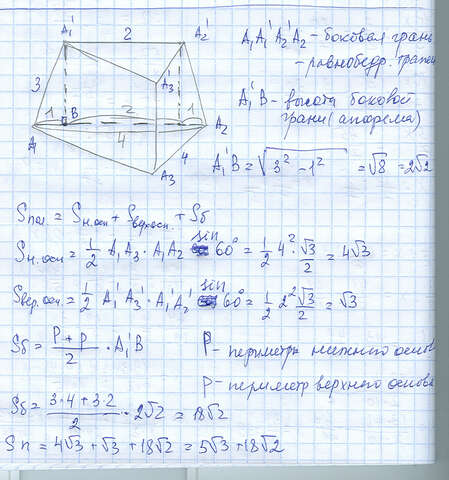 A₁' 2 A₂'
A₁A₁'A₂'A₂ - боковая грань
- равнобедр.
3 A₃'
A₁'B - высота боковой
1 B 2 1
грани (апофема)
A₁ 4 A₂
A₃ 4
A₁'B = √(3² - 1²) = √8 = 2√2
Sпол. = Sн.осн + Sверхосн. + Sб
Sн.осн = 1/2 A₁A₃ · A₁A₂ sin 60° = 1/2 4² · √3/2 = 4√3
Sвер.осн = 1/2 A₁'A₃' · A₁'A₂' sin 60° = 1/2 2² √3/2 = √3
Sб = (P + p)/2 · A₁'B
P - периметр нижнего
p - периметр верхнего
Sб = (3·4 + 3·2)/2 · 2√2 = 18√2
Sп = 4√3 + √3 + 18√2 = 5√3 + 18√2